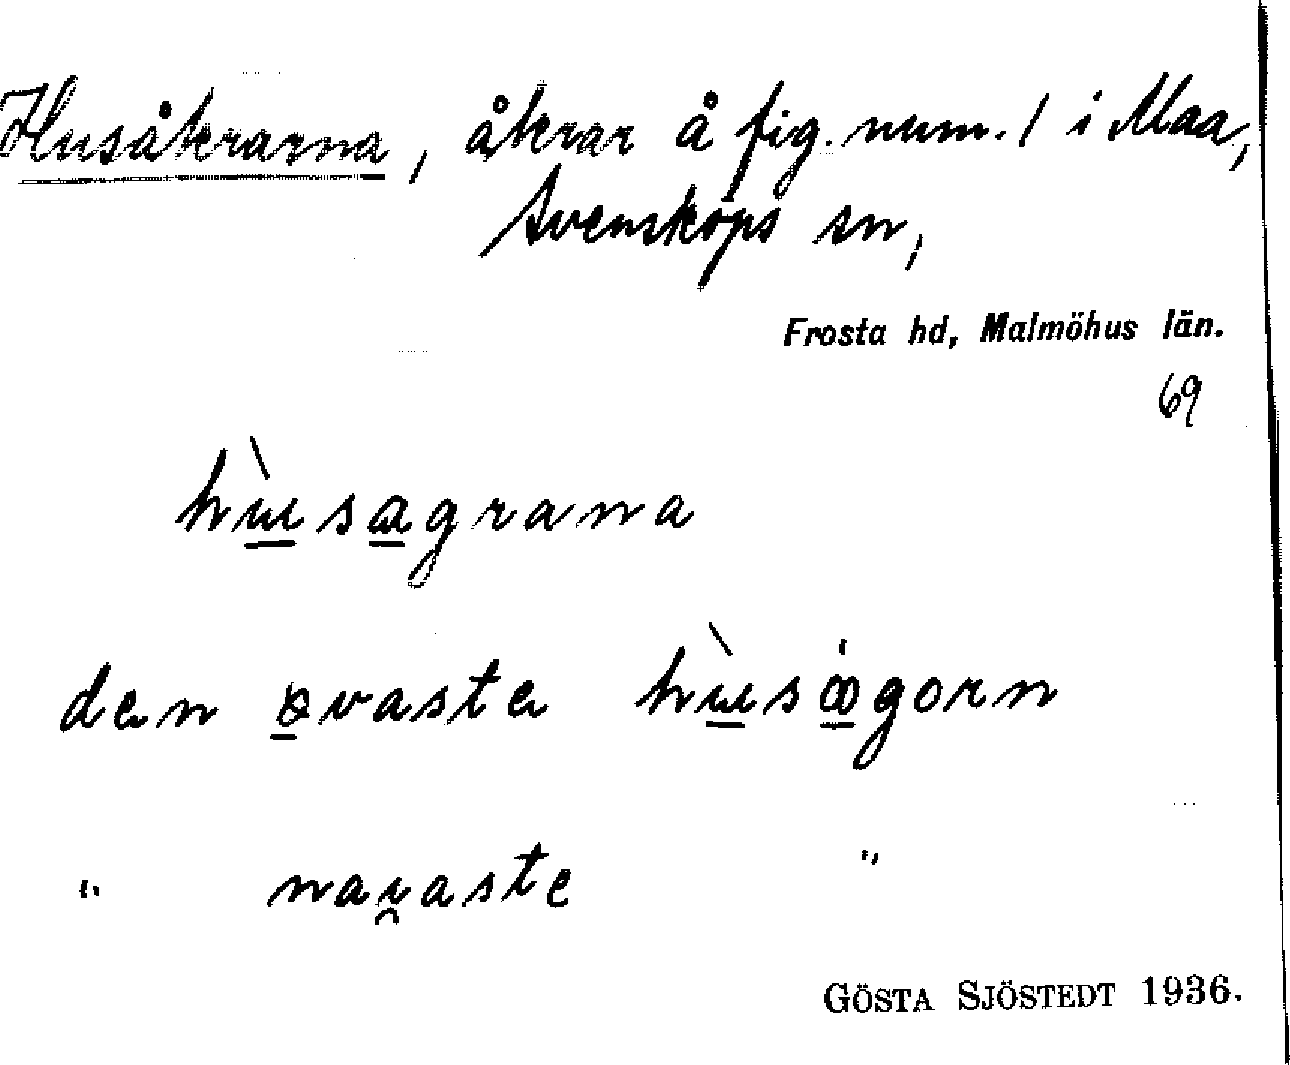 Husåkrarna, åkrar å fig. num. 1 i Maa,
Svensköps sn,
Frosta hd, Malmöhus län.
69
hùsagrana
den øvaste hùsågorn
" naraste "
GÖSTA SJÖSTEDT 1936.